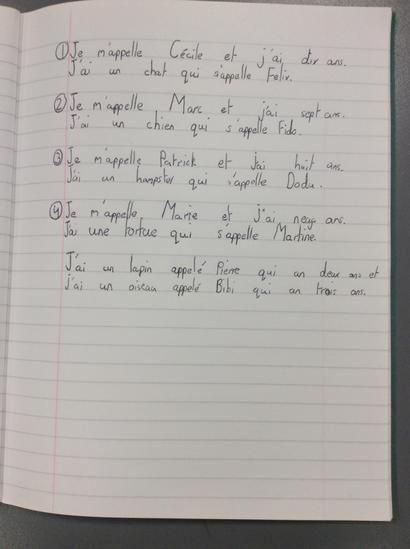 ① Je m'appelle Cécile et j'ai dix ans.
J'ai un chat qui s'appelle Felix.
② Je m'appelle Marc et j'ai sept ans.
J'ai un chien qui s'appelle Fido.
③ Je m'appelle Patrick et J'ai huit ans.
J'ai un hampster qui s'appelle Dodu.
④ Je m'appelle Marie et j'ai neuf ans.
J'ai une tortue qui s'appelle Martine.
J'ai un lapin appelé Pierre qui an deux ans et
j'ai un oiseau appelé Bibi qui an trois ans.